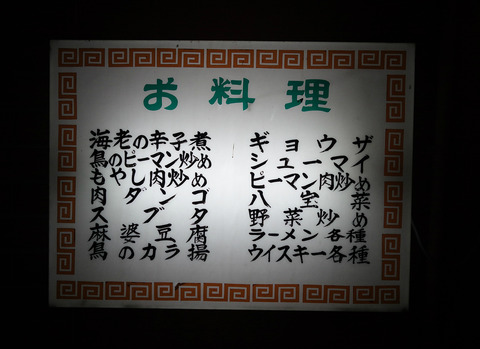 お料理
海老の辛子煮
鳥のピーマン炒め
もやし肉炒め
肉ダンゴ
スブタ
麻婆豆腐
鳥のカラ揚
ギョウザ
シューマイ
ピーマン肉炒め
八宝菜
野菜炒め
ラーメン各種
ウイスキー各種